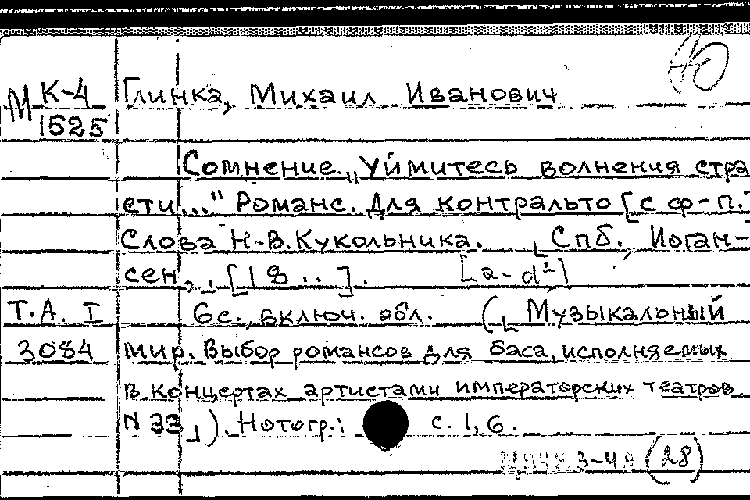 40
М К-4 Глинка, Михаил Иванович
1525
Сомнение "Уймитесь волнения стра
сти..." Романс. Для контральто [с ф-п.]
Слова Н.В.Кукольника. Спб., Иоган-
сен, [18..]. [a-d²]
Т.А. I 6с., включ. обл. (Музыкальный
3084 мир. Выбор романсов для баса, исполняемых
в концертах артистами императорских театров
N 33). Нотогр.: с. 1, 6.
3-49 (28)